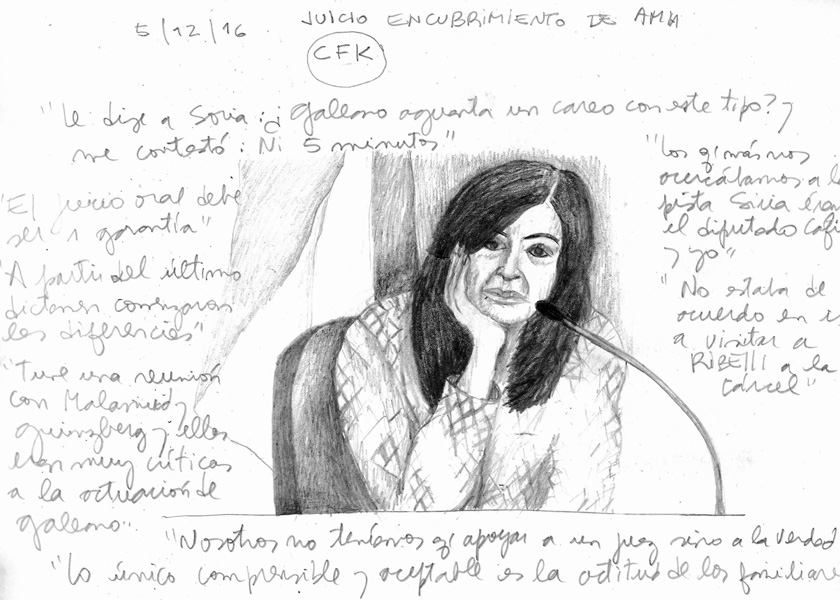 5/12/16 JUICIO ENCUBRIMIENTO DE AMIA
CFK
"Le dije a Soria: ¿Galeano aguanta un careo con este tipo? y
me contestó: Ni 5 minutos"
"El juicio oral debe
ser 1 garantía"
"A partir del último
dictamen comenzaron
las diferencias"
"Tuve una reunión
con Malamud y
Guinzberg y ellos
eran muy críticos
a la actuación de
Galeano".
"Los q' más nos
acercábamos a la
pista Siria éramos
el diputado
y yo"
"No estaba de
acuerdo en ir
a visitar a
RIBELLI a la
cárcel"
"Nosotros no teníamos q' apoyar a un juez sino a la verdad
"Lo único comprensible y aceptable es la actitud de los familiare